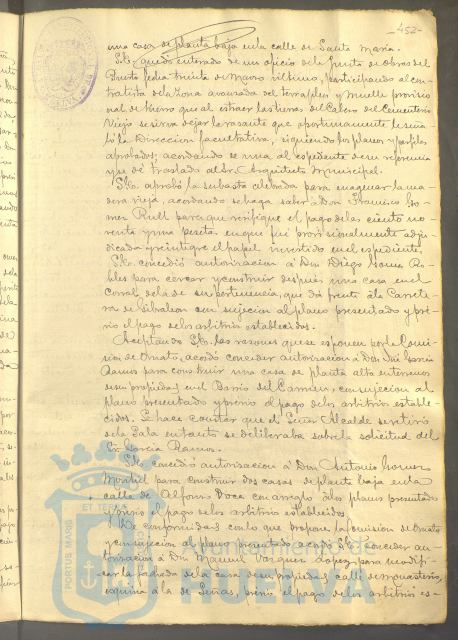 452-
una casa de planta baja en la calle de Santa María.
S.E. quedó enterado de un oficio de la Junta de Obras del
Puerto fecha treinta de Marzo último, participando al con-
tratista de la Zona avanzada del terraplen y muelle provisio-
nal de hierro que al extraer las tierras del Cabezo del Cementerio
Viejo se sirva dejar la rasante que oportunamente le seña-
ló la Dirección facultativa, siguiendo los planos y perfiles
aprobados; acordando se una al expediente de su referencia
y se dé traslado al Sr. Arquitecto Municipal.
S.E. aprobó la subasta celebrada para enagenar la ma-
dera vieja, acordando se haga saber a Don Francisco Go-
mez Rull para que verifique el pago de las ciento no-
venta y una peseta en que fué provisionalmente adju-
dicada y reintegre el papel invertido en el expediente.
S.E. concedió autorización á Don Diego Gomez Ro-
bles para cercar y construir después una casa en el
corral de la de su pertenencia, que dá frente á la Carrete-
ra de Gibraleon con sujeción al plano presentado y pré-
vio el pago de los arbitrios establecidos.
Aceptando S.E. las razones que se exponen por la Comi-
sion de Ornato, acordó conceder autorización á Don José García
Ramos para construir una casa de planta alta en terrenos
de su propiedad en el Barrio del Carmen, con sujeción al
plano presentado y prévio el pago de los arbitrios estable-
cidos. Se hace constar que el Señor Alcalde se retiró
de la Sala en tanto se deliberaba sobre la solicitud del
Sr. García Ramos.
S.E. concedió autorización á Don Antonio Gomez
Montiel para construir dos casas de planta baja en la
calle de Alfonso Doce con arreglo á los planos presentados
y prévio el pago de los arbitrios establecidos.
De conformidad con lo que propone la Comision de Ornato
y con sujeción al plano presentado acordó S.E. conceder au-
torización á Don Manuel Vazquez Lopez para modifi-
car la fachada de la casa de su propiedad calle de Monasterio,
esquina á la de Señas, prévio el pago de los arbitrios es-
PORTUS MARIS ET TERRAE
Ayuntamiento de
HUELVA